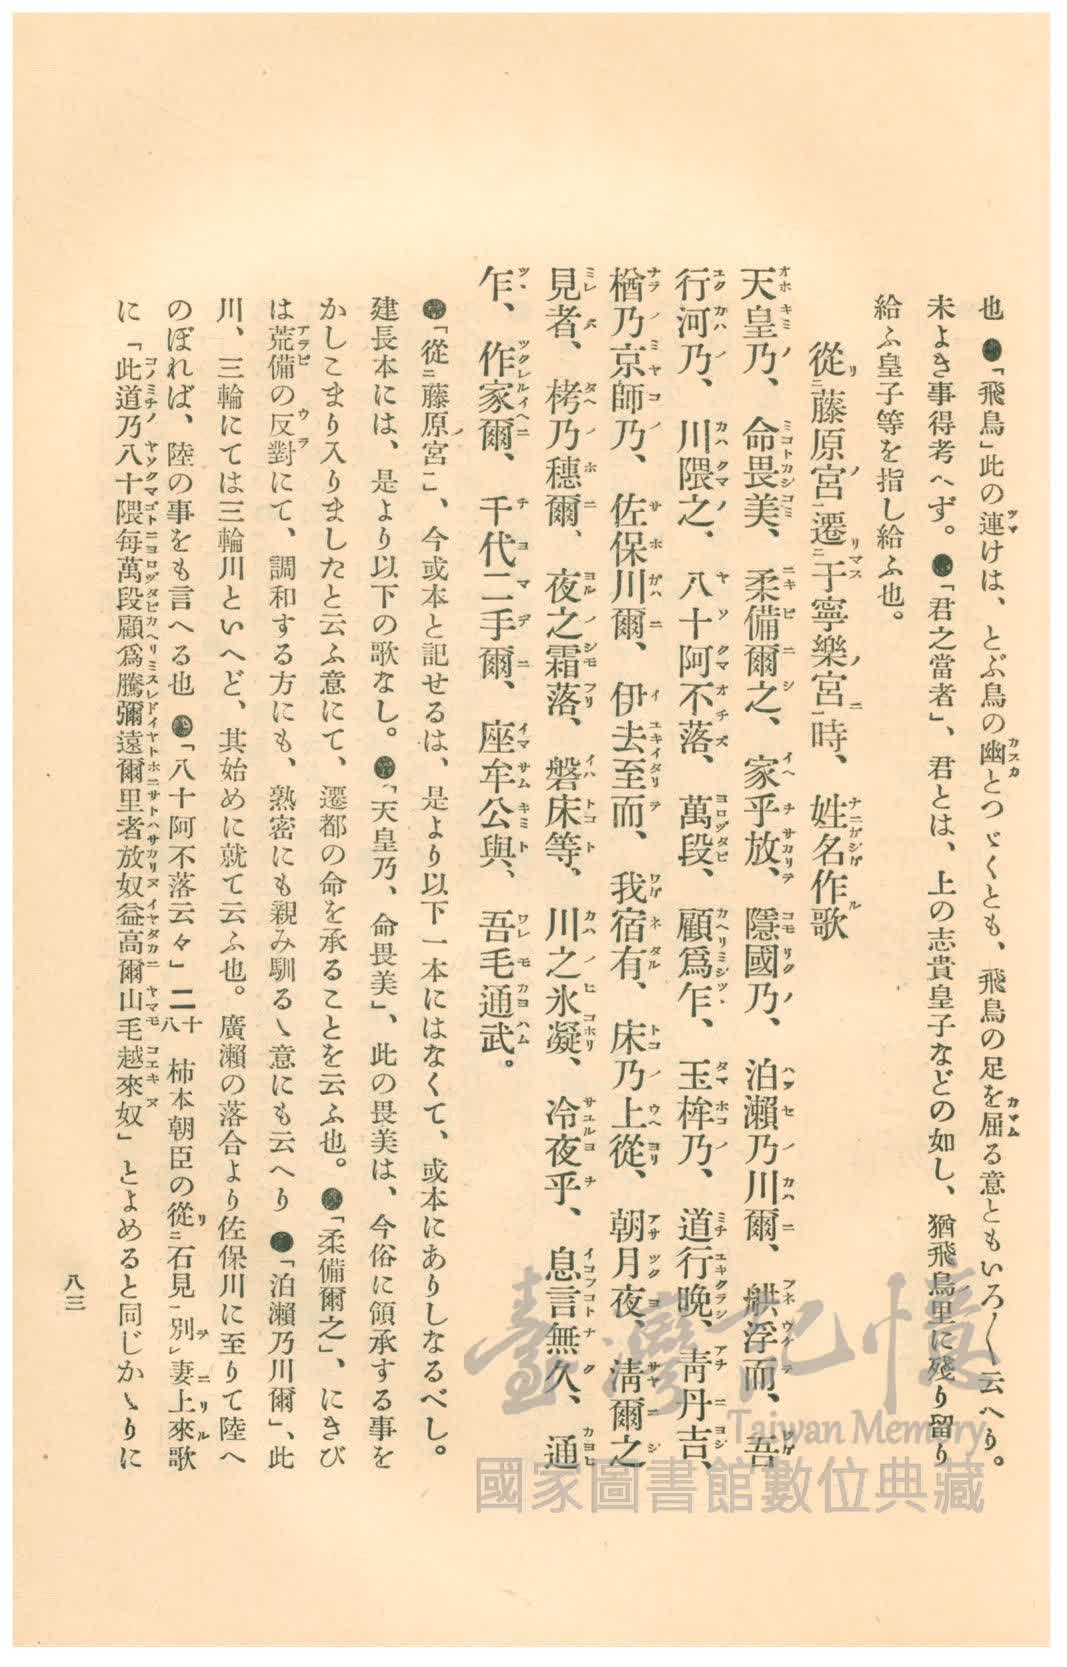 也●「飛鳥」此の連けは、とぶ鳥の幽とつゞくとも、飛鳥の足を屈る意ともいろ〱云へり。
未よき事得考へず。●「君之當者」、君とは、上の志貴皇子などの如し、猶飛鳥里に殘り留り
給ふ皇子等を指し給ふ也。
從藤原宮遷于寧樂宮時、姓名作歌
天皇乃、命畏美、柔備爾之、家乎放、隱國乃、泊瀨乃川爾、𦨞浮而、吾
行河乃、川隈之、八十阿不落、萬段、顧爲乍、玉桙乃、道行晩、靑丹吉、
楢乃京師乃、佐保川爾、伊去至而、我宿有、床乃上從、朝月夜、淸爾之
見者、栲乃穗爾、夜之霜落、磐床等、川之氷凝、冷夜乎、息言無久、通
乍、作家爾、千代二手爾、座牟公與、吾毛通武。
●「從藤原宮」、今或本と記せるは、是より以下一本にはなくて、或本にありしなるべし。
建長本には、是より以下の歌なし。●「天皇乃、命畏美」、此の畏美は、今俗に領承する事を
かしこまり入りましたと云ふ意にて、遷都の命を承ることを云ふ也。●「柔備爾之」、にきび
は荒備の反對にて、調和する方にも、熟密にも親み馴るゝ意にも云へり●「泊瀨乃川爾」、此
川、三輪にては三輪川といへど、其始めに就て云ふ也。廣瀨の落合より佐保川に至りて陸へ
のぼれば、陸の事をも言へる也●「八十阿不落云々」二十八柿本朝臣の從石見別妻上來歌
に「此道乃八十隈每萬段顧爲騰彌遠爾里者放奴益高爾山毛越來奴」とよめると同じかゝりに
八三
臺灣記憶
Taiwan Memory
國家圖書館數位典藏